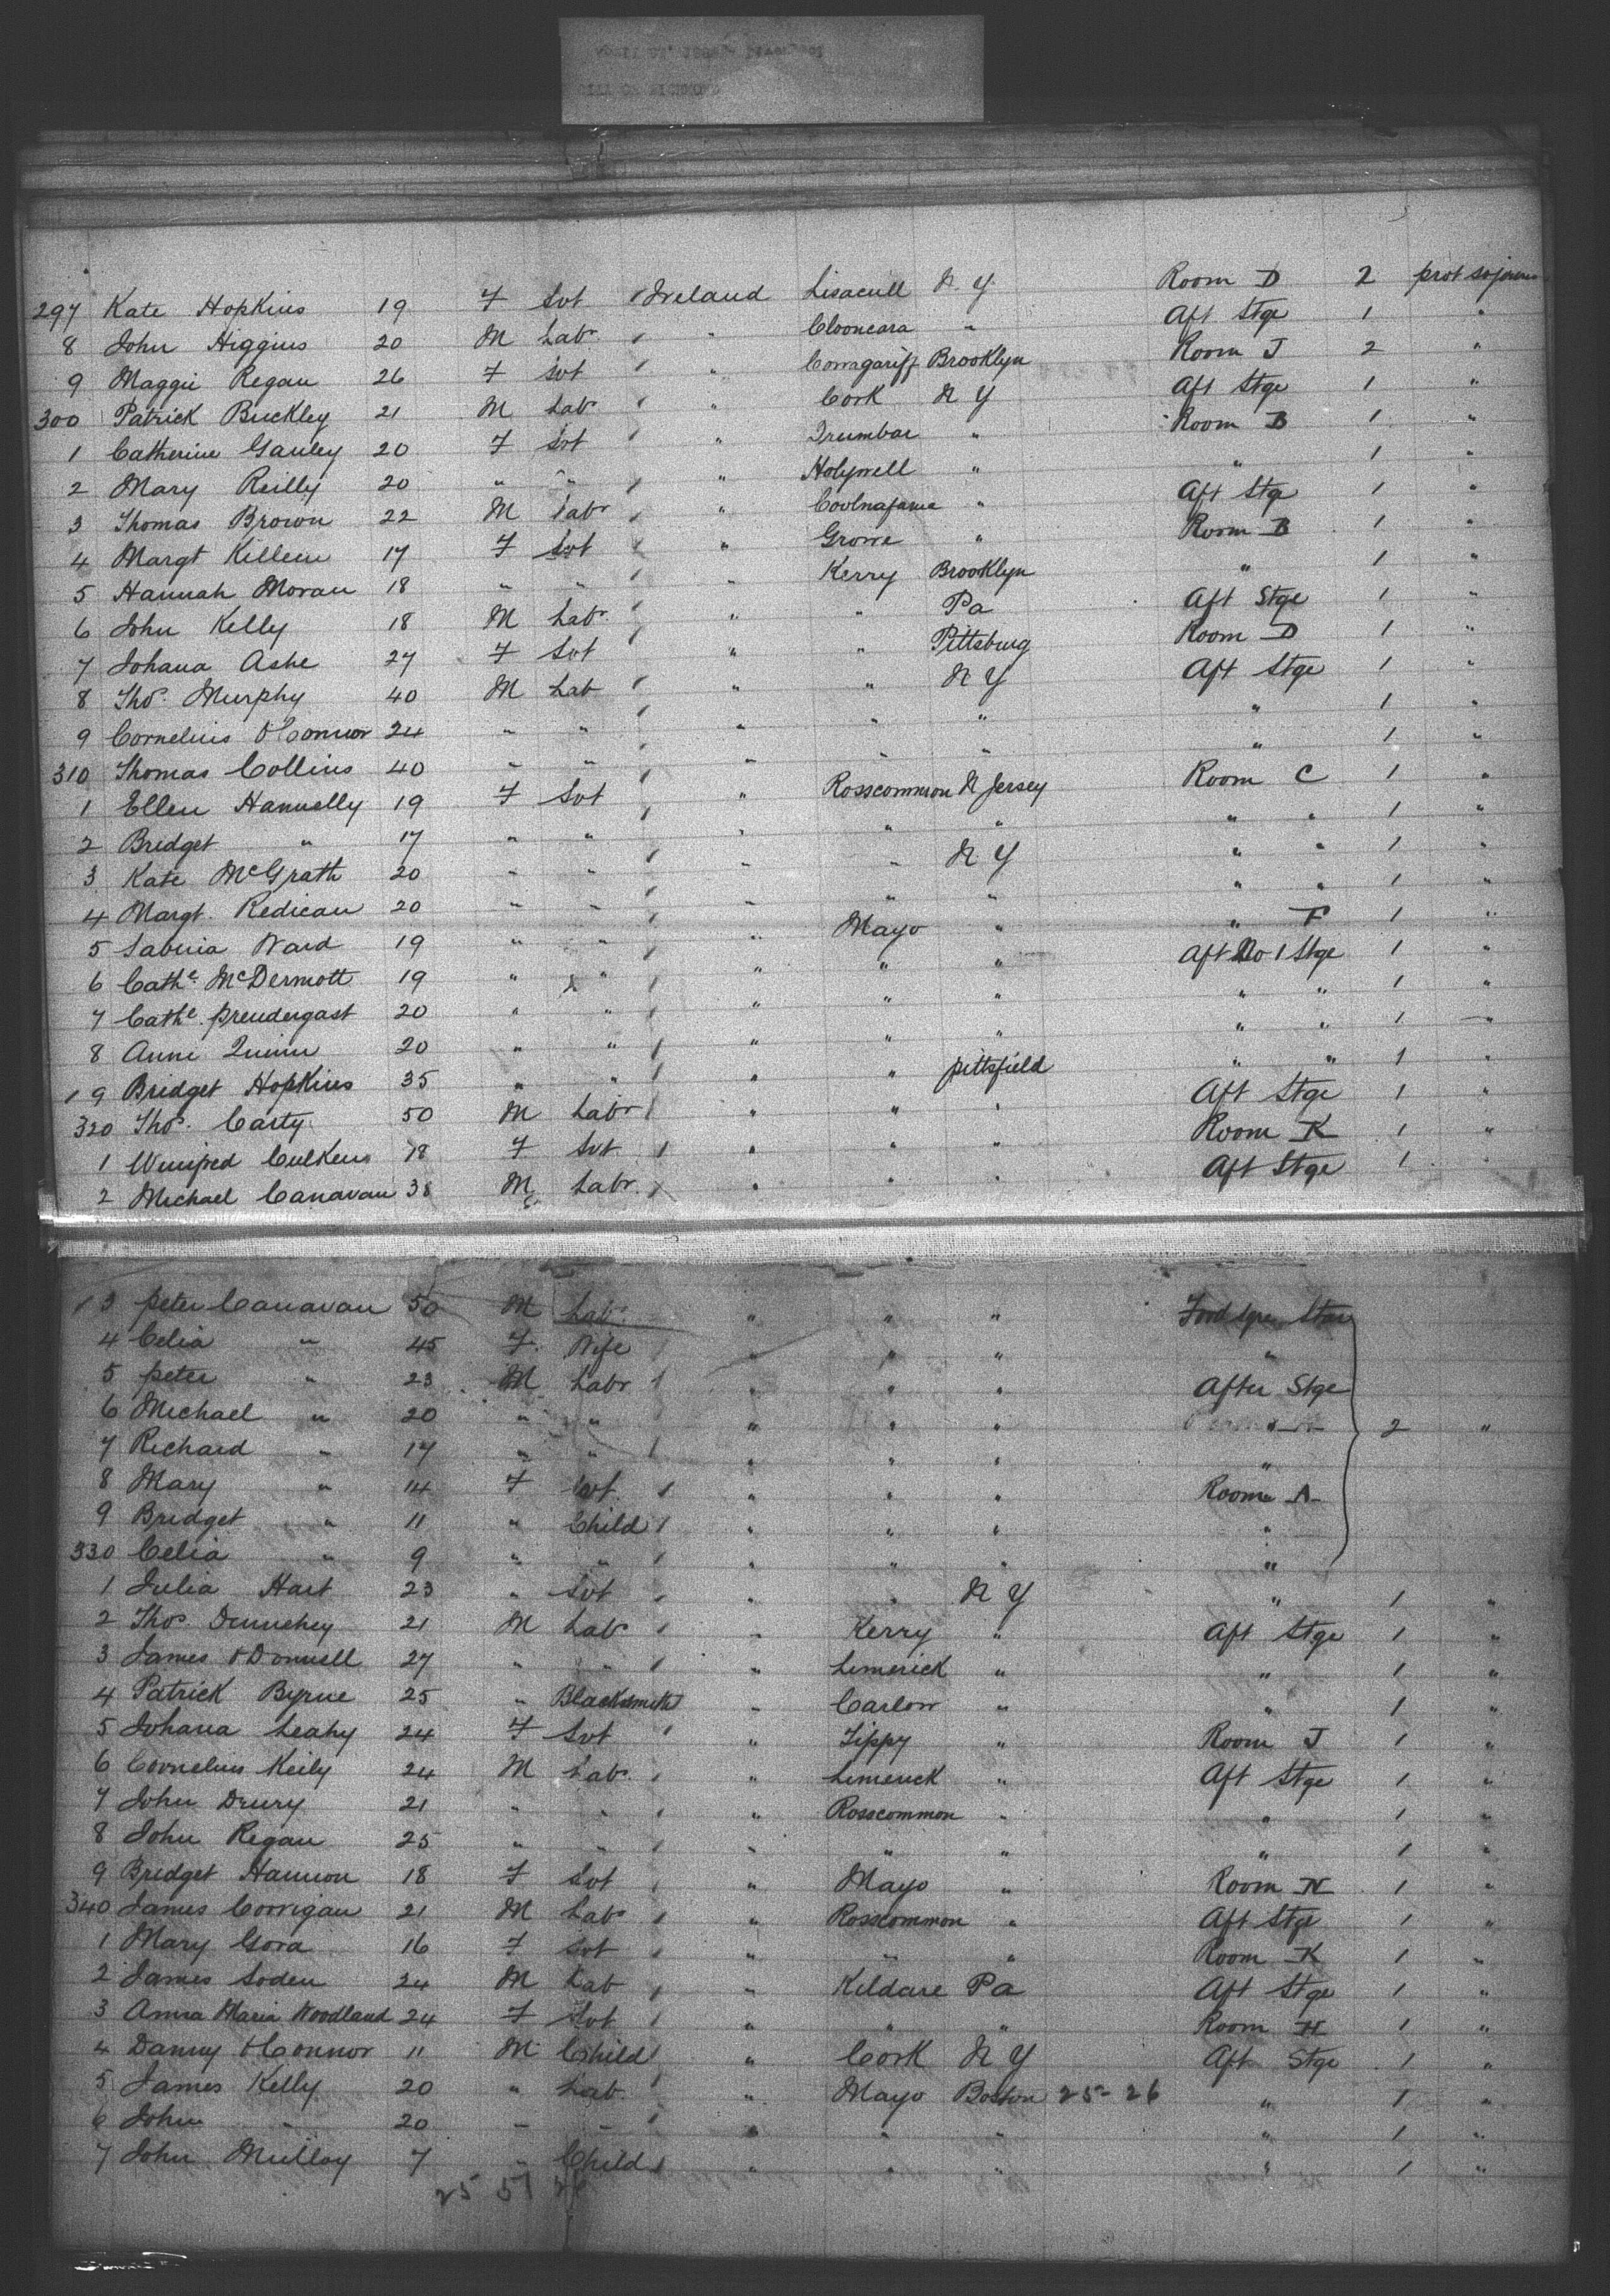 297 Kate Hopkins 19 F Svt / Ireland Lisacull N Y Room D 2 prot sojourn
8 John Higgins 20 M Labr / " Clooncara " Aft Stge 1 "
9 Maggie Regan 26 F Svt / " Corragariff Brooklyn Room J 2 "
300 Patrick Buckley 21 M Labr / " Cork N Y Aft Stge 1 "
1 Catherine Gauley 20 F Svt / " Drumbar " Room B 1 "
2 Mary Reilly 20 " " / " Holywell " " 1 "
3 Thomas Brown 22 M Labr / " " Aft Stge 1 "
4 Margt Killeen 17 F Svt / " Grove " Room B 1 "
5 Hannah Moran 18 " " / " Kerry Brooklyn " 1 "
6 John Kelly 18 M Labr / " " Pa Aft Stge 1 "
7 Johana Ashe 27 F Svt / " " Pittsburg Room D 1 "
8 Thos. Murphy 40 M Lab / " " N Y Aft Stge 1 "
9 Cornelius O'Connor 24 " " / " " " " 1 "
310 Thomas Collins 40 " " / " " " " 1 "
1 Ellen Hannelly 19 F Svt / " Rosscommon N Jersey Room C 1 "
2 Bridget " 17 " " / " " " " " 1 "
3 Kate McGrath 20 " " / " " N Y " " 1 "
4 Margt. Redican 20 " " / " " " " " 1 "
5 Sabina Ward 19 " " / " Mayo " " F 1 "
6 Cathe McDermott 19 " x " / " " " Aft No 1 Stge 1 "
7 Cathe. prendergast 20 " " / " " " " " 1 "
8 Anne Quinn 20 " " / " " " " " 1 "
/ 9 Bridget Hopkins 35 " " / " " pittsfield " " 1 "
320 Thos. Carty 50 M Labr / " " " Aft Stge 1 "
1 Winifred Culkens 18 F Svt / " " " Room K 1 "
2 Michael Canavan 38 M Labr / " " " Aft Stge 1 "
/ 3 peter Canavan 50 M Labr " " " Star
4 Celia " 45 F. Wife / " " " "
5 peter " 23 M Labr / " " " After Stge
6 Michael " 20 " " " " " " 2 "
7 Richard " 17 " " / " " " "
8 Mary " 14 F Svt / " " " Room A
9 Bridget " 11 " Child / " " " "
330 Celia " 9 " " / " " " "
1 Julia Hart 23 " Svt / " " N Y " 1 "
2 Thos. Dunnehey 21 M Labr / " Kerry " Aft Stge 1 "
3 James O'Donnell 27 " " / " Limerick " " 1 "
4 Patrick Byrne 25 " Blacksmith " Carlow " " 1 "
5 Johana Leahy 24 F Svt / " Tippy " Room J 1 "
6 Cornelius Keily 24 M Labr. / " Limerick " Aft Stge 1 "
7 John Drury 21 " " / " Rosscommon " " 1 "
8 John Regan 25 " " / " " " " 1 "
9 Bridget Hannon 18 F Svt / " Mayo " Room N 1 "
340 James Corrigan 21 M Labr / " Rosscommon " Aft Stge 1 "
1 Mary Gora 16 F Svt / " " " Room K 1 "
2 James Soden 24 M Lab / " Kildare Pa Aft Stge 1 "
3 Anna Maria Woodland 24 F Svt / " " " Room H 1 "
4 Danny O'Connor 11 M Child / " Cork N Y Aft Stge 1 "
5 James Kelly 20 " Lab / " Mayo Boston 25-26 " 1 "
6 John " 20 " " / " " " " 1 "
7 John Mulloy 7 " Child / " " " " 1 "
25 51 26